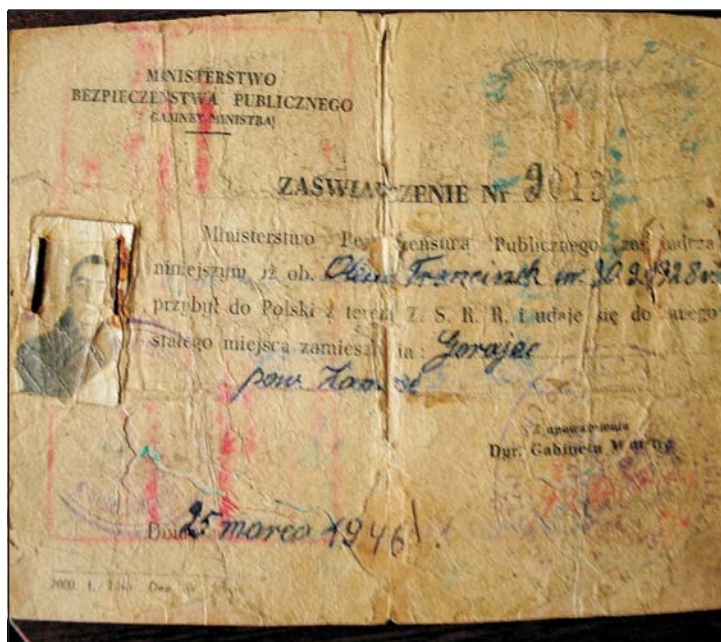 MINISTERSTWO
BEZPIECZEŃSTWA PUBLICZNEGO
GABINET MINISTRA
ZAŚWIADCZENIE Nr 9013
Ministerstwo Bezpieczeństwa Publicznego zaświadcza
niniejszym iż ob. Franciszek ur. 30.9.1928 r.
przybył do Polski z teren. Z. S. R. R. i udaje się do swego
stałego miejsca zamieszkania: Gorajec
pow. Zamość
Z upoważnienia
Dyr. Gabinetu Ministra
Dnia 25 marca 1946